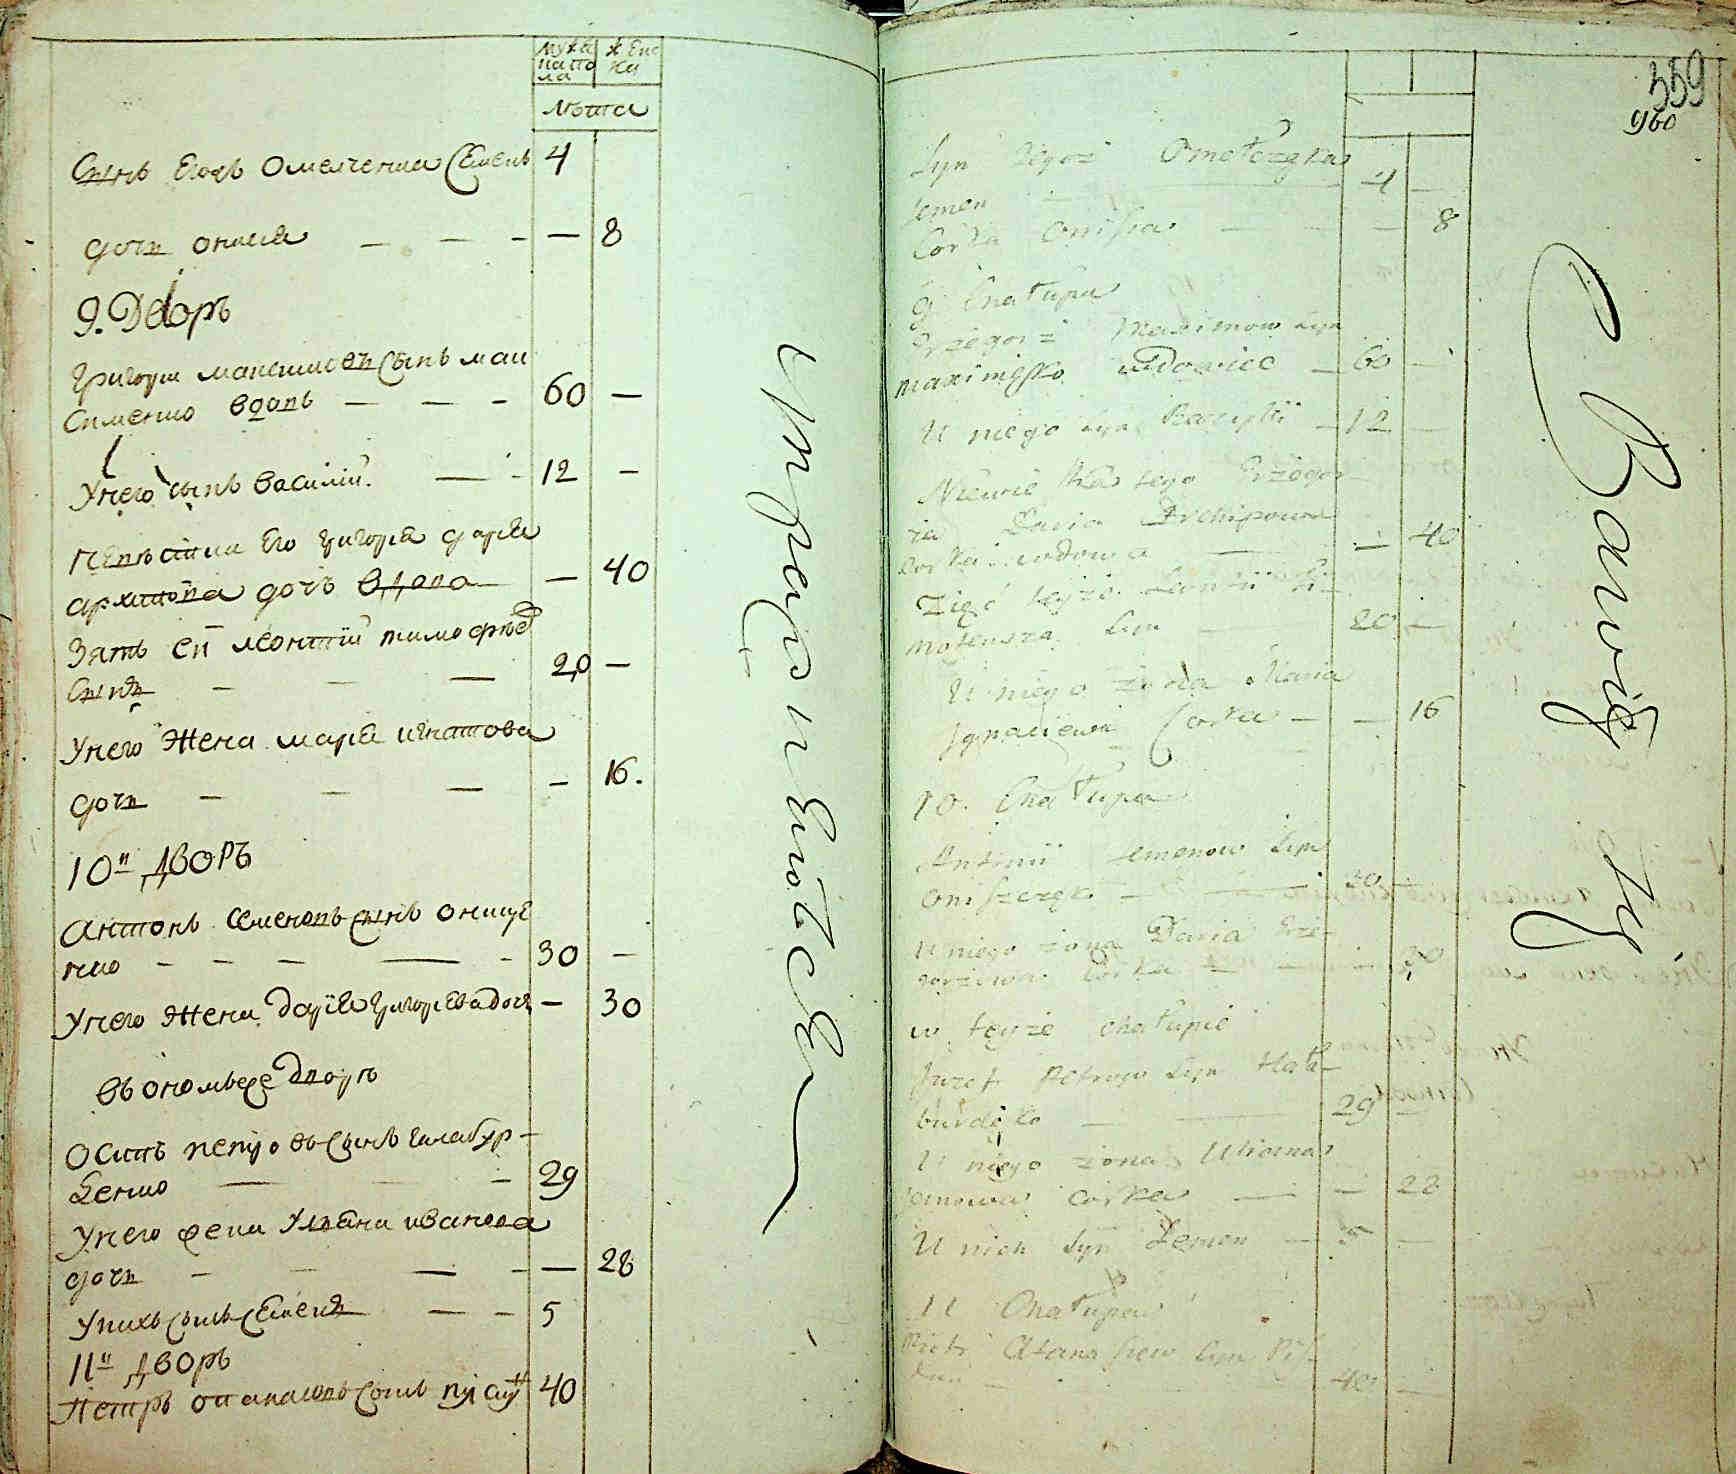 мужеска пола
женска
лѣта
Сынъ Егожъ Омелченка Семенъ 4
дочь онися — — - — 8
9. Дворъ
Григори максимовъ сынъ мак
сименко вдовъ — — - 60 —
У него сынъ василий. — - 12 —
Невѣстка Его Григоря дарія
архипова дочъ вдова — — 40
Зять Ей леонтий тимофѣев
сынъ — — — 20 —
У него жена марія игнатова
дочь — — — — 16.
10й ДВОРЪ
Антонъ семеновъ сынъ онище
нко — — — — - 30 —
У него жена дарія григорієва дочь — 30
въ оном дворѣ
Осипъ петровъ сынъ галабур-
денко — — - 29
У него жена Уляна иванова
дочь — — — - — 28
У нихъ сынъ Семенъ — — 5
11й ДВОРЪ
Петръ опанасовъ сынъ 40
359
960
Syn tegoż Omełczęka
Semen — 4 —
Corka Onisia — — 8
9 Chałupa
Grzegorz Maximow syn
Maximęko wdowiec — 60 —
U niego syn Bazylii — 12 —
Niewiestka tego Grzegor-
za Daria Archipowa
corka wdowa — — 40
Zięć teyże Leontii Ti-
mofeusza syn — 20 —
U niego żona Maria
Ignaciewa Corka — — 16
10. Chałupa
Antonii Semenow syn
Oniszczęko — 30 —
U niego żona Daria Grze-
gorzowa Corka — — 30
w teyże chałupie
Jozef Petrow syn Hała-
burdęko — — 29
U niego żona Uliana
Corka — — 28
U nich syn Semen — 5 —
11 Chałupa
Piotr Atanasiew syn
40 —